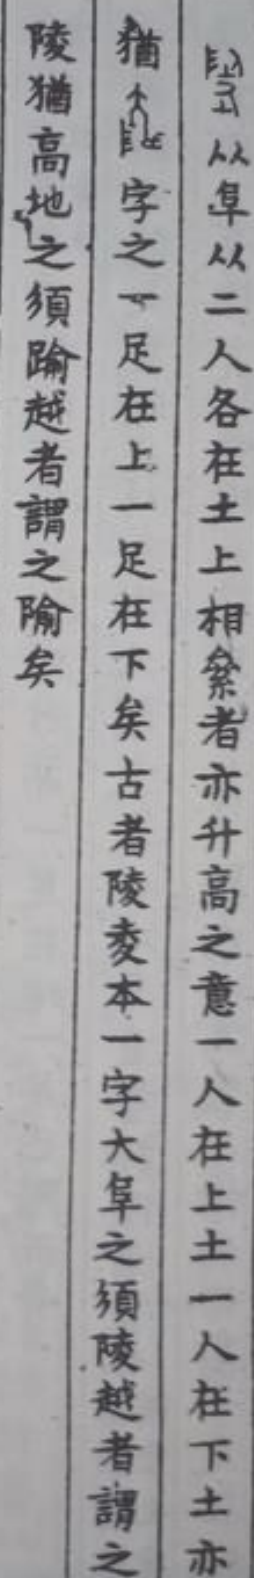 从阜从二人各在土上相絫者亦升高之意一人在上土一人在下土亦
猶字之一足在上一足在下矣古者陵夌本一字大阜之須陵越者謂之
陵猶高地之須踰越者謂之隃矣